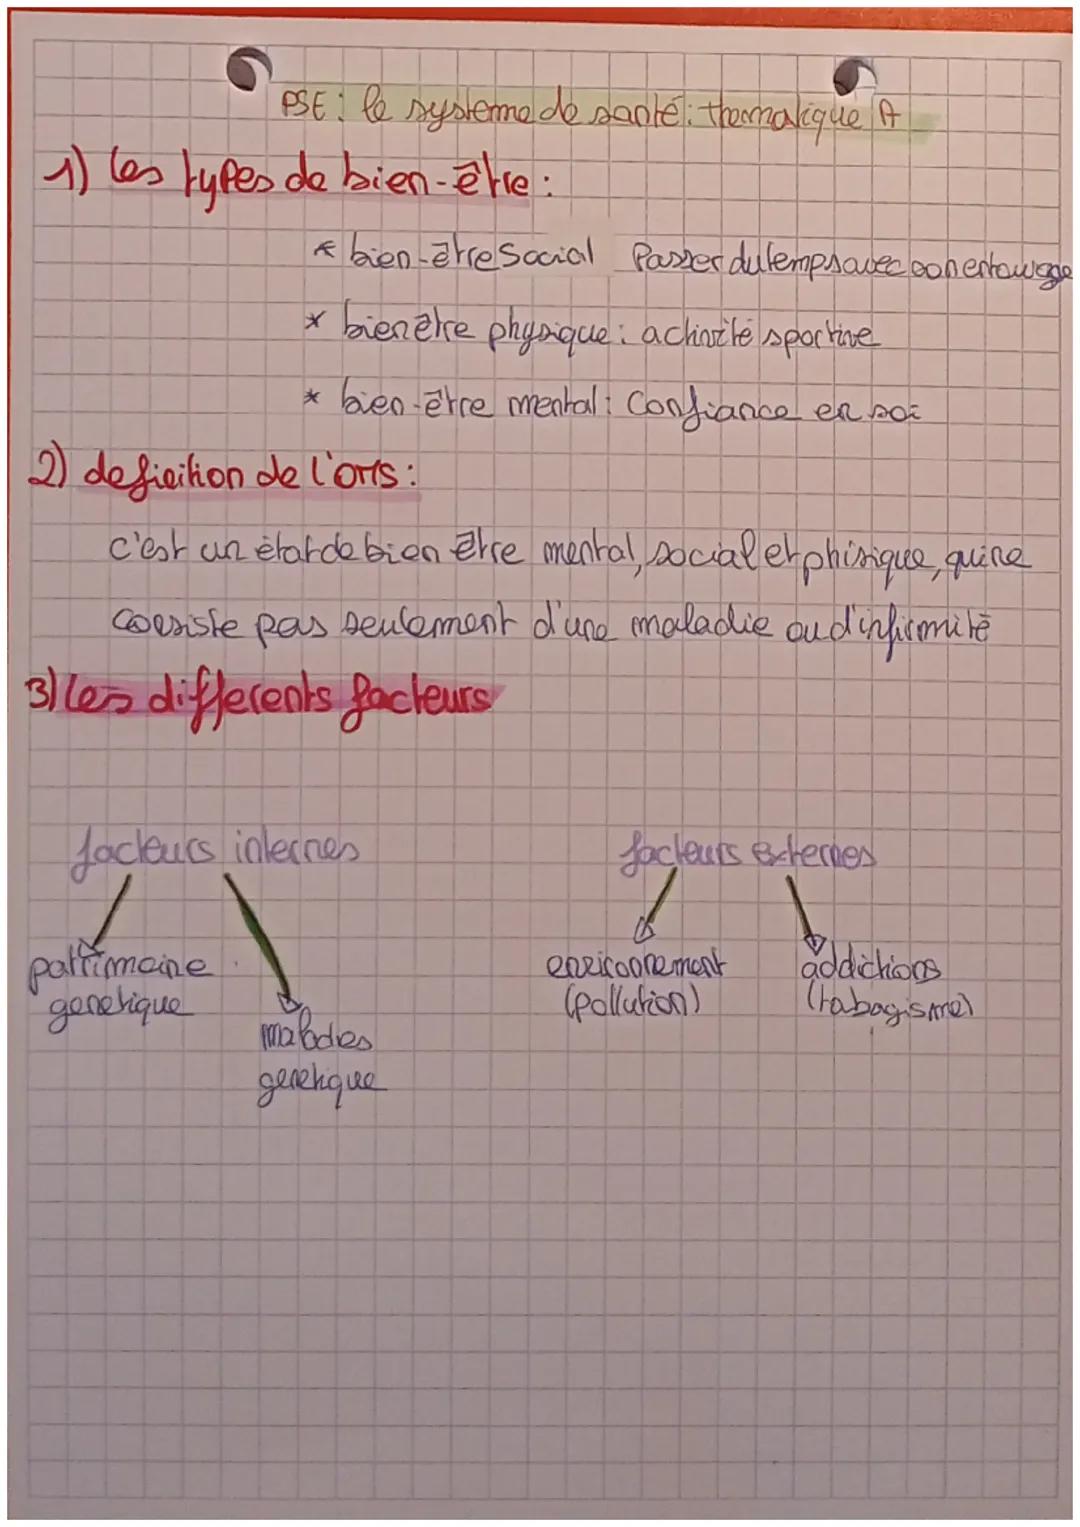 PSE : le systeme de santé : thematique A
1) les types de bien-être :
* bien-être social Passer du temps avec son entourage
* bien être physique : activité sportive
* bien-être mental : Confiance en soi
2) definition de l'oms :
c'est un état de bien être mental, social et phisique, qui ne
consiste pas seulement d'une maladie ou d'infirmité
3) les differents facteurs
facteurs internes
facteurs externes
patrimoine
genetique
maladies
genetique
environnement
(pollution)
addictions
(tabagisme)